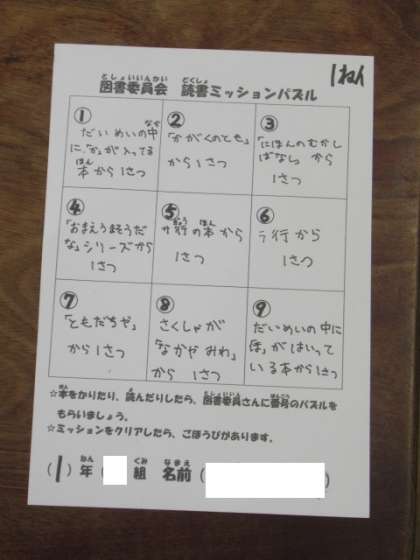 1ねん
としょいいんかい どくしょ
図書委員会 読書ミッションパズル
①
なか
だいめいの中
に、「か」が入ってる
ほん
本から1さつ
②
「かがくのとも」
から1さつ
③
「にほんのむかし
ばなし」から
1さつ
④
「おまえうまそうだ
な」シリーズから
1さつ
⑤
ぎょう ほん
サ行の本から
1さつ
⑥
ラ行から
1さつ
⑦
「ともだちや」
から1さつ
⑧
さくしゃが
「なかやみわ」
から 1さつ
⑨
だいめいの中に
「ほ」がはいって
いる本から1さつ
ほん よ としょいいん ばんごう
☆本をかりたり、読んだりしたら、図書委員さんに番号のパズルを
もらいましょう。
☆ミッションをクリアしたら、ごほうびがあります。
ねん くみ なまえ
(1)年( 組 名前( )